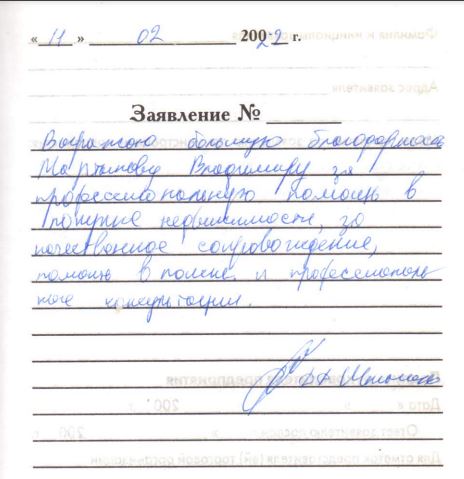 « 11 » 02 20022 г.
Заявление №
Выражаю большую благодарность
Мартынову Владимиру за
профессиональную помощь в
покупке недвижимости, за
качественное сопровождение,
помощь в поиске и профессиональ
ные консультации.